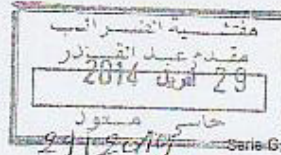 مفتشية الضرائب
مقدم عبد القادر
29 أفريل 2014
حاسي مسعود
Serie G